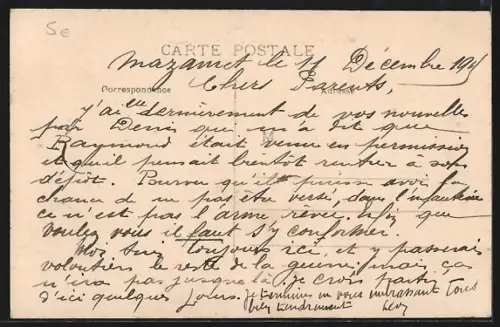 5e
CARTE POSTALE
Mazamet le 11 Décembre 191
Correspondance Adresse
Chers Parents,
J'ai eu dernièrement de vos nouvelles
par Denis qui m'a dit que
Raymond était venu en permission
et qu'il pensait bientôt rentrer à son
dépôt. Pourvu qu'il puisse avoir la
chance de ne pas être versé dans l'infanterie
ce n'est pas l'arme rêvée. que
voulez vous il faut s'y conformer.
Moi suis toujours ici, et y passerais
volontiers le reste de la guerre, mais, ça
n'ira pas jusque là je crois partir
d'ici quelques jours. Je termine en vous embrassant tous
bien tendrement